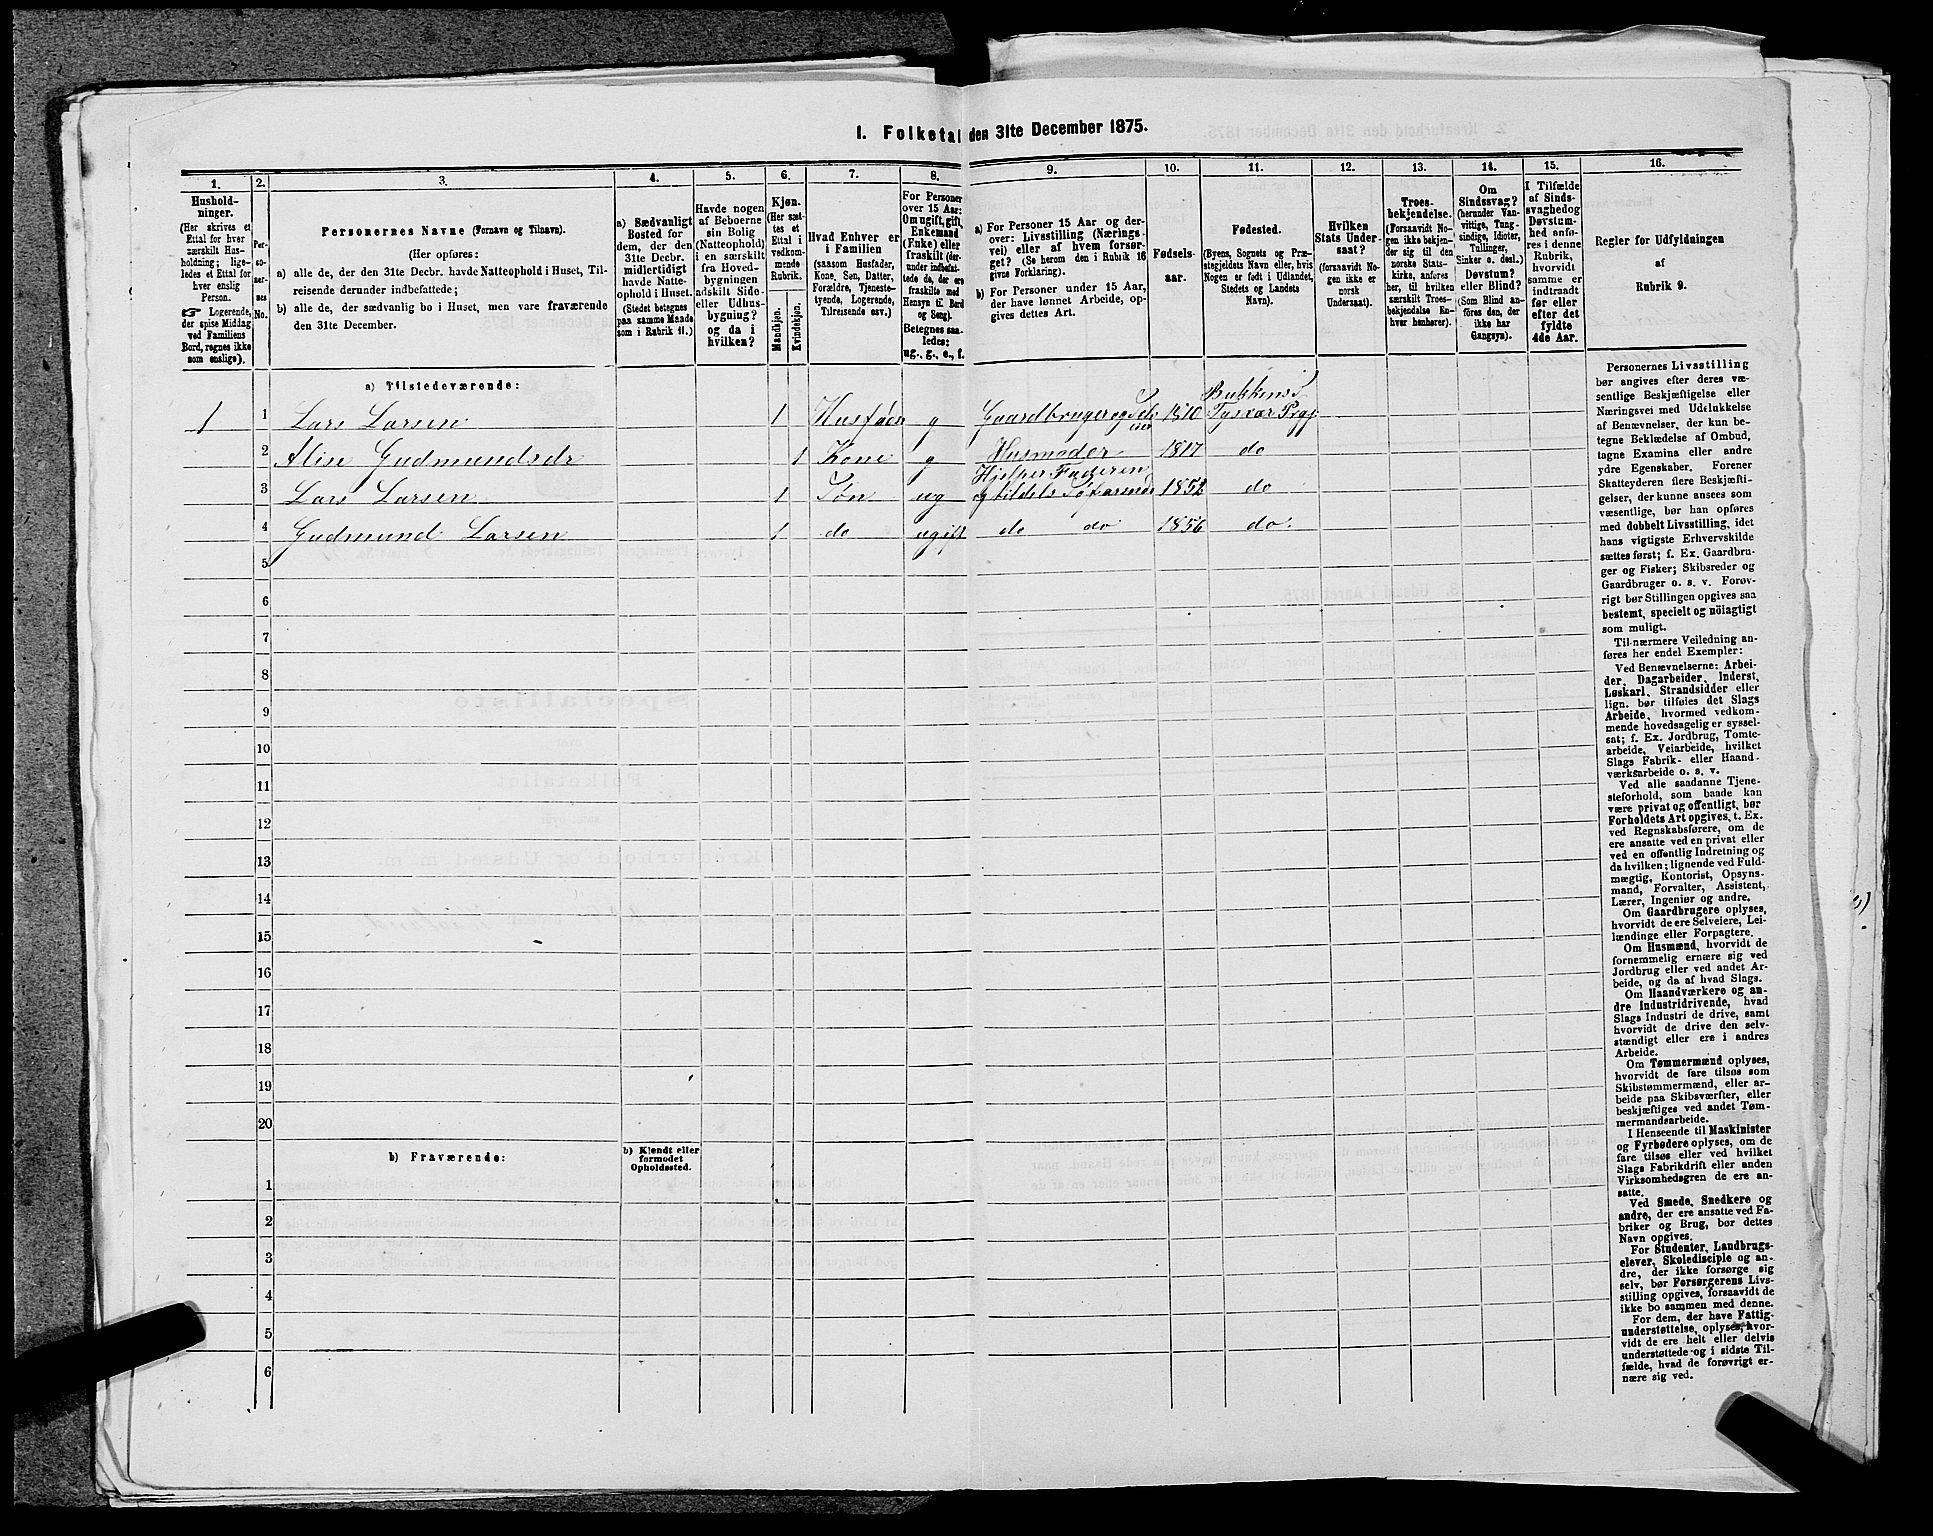 1. Folketal den 31te December 1875.
1.
2.
3.
4.
5.
6.
7.
8.
9.
10.
11.
12.
13.
14.
15.
16.
Hushold-
ninger.
(Her skrives et
Ettal for hver
særskilt Hus-
holdning; lige-
ledes et Ettal for
hver enslig
Person.
☞ Logerende,
der spise Middag
ved Familiens
Bord, regnes ikke
som enslige).
Per-
so-
ner-
nes
No.
Personernes Navne (Fornavn og Tilnavn).
(Her opføres:
a) alle de, der den 31te Decbr. havde Natteophold i Huset, Til-
reisende derunder indbefattede;
b) alle de, der sædvanlig bo i Huset, men vare fraværende
den 31te December.
a) Sædvanligt
Bosted for
dem, der den
31te Decbr.
midlertidigt
havde Natte-
ophold i Huset.
(Stedet betegnes
paa samme Maade
som i Rubrik 11.)
Havde nogen
af Beboerne
sin Bolig
(Natteophold)
i en særskilt
fra Hoved-
bygningen
adskilt Side-
eller Udhus-
bygning?
og da i
hvilken?
Kjøn.
(Her sæt-
tes et
Ettal i
vedkom-
mende
Rubrik.
Mandkjøn.
Kvindekjøn.
Hvad Enhver er
i Familien
(saasom Husfader,
Kone, Søn, Datter,
Forældre, Tjeneste-
tyende, Logerende,
Tilreisende osv.)
For Personer
over 15 Aar:
Om ugift, gift,
Enkemand
(Enke) eller
fraskilt (der-
under indbefat-
tede de, der ere
fraskilte med
Hensyn til Bord
og Seng).
Betegnes saa-
ledes:
ug., g., e., f.
a) For Personer 15 Aar og der-
over: Livsstilling (Nærings-
vei) eller af hvem forsør-
get? (Se herom den i Rubrik 16
givne Forklaring).
b) For Personer under 15 Aar,
der have lønnet Arbeide, op-
gives dettes Art.
Fødsels-
aar.
Fødested.
(Byens, Sognets og Præ-
stegjeldets Navn eller, hvis
Nogen er født i Udlandet,
Stedets og Landets
Navn).
Hvilken
Stats Under-
saat?
(forsaavidt No-
gen ikke er
norsk
Undersaat).
Troes-
bekjendelse.
(Forsaavidt No-
gen ikke bekjen-
der sig til den
norske Stats-
kirke, anføres
her, til hvilken
særskilt Troes-
bekjendelse En-
hver henhører).
Om
Sindssvag?
(herunder Van-
vittige, Tung-
sindige, Idioter,
Tullinger,
Sinker o. desl.)
Døvstum?
eller Blind?
(Som Blind an-
føres den, der
ikke har
Gangsyn).
I Tilfælde
af Sinds-
svaghed og
Døvstum-
hed anfø-
res i denne
Rubrik,
hvorvidt
samme er
indtraadt
før eller
efter det
fyldte
4de Aar.
Regler for Udfyldningen
af
Rubrik 9.
a) Tilstedeværende:
1 1 Lars Larsen 1 Husfader g Gaardbruger og 1810 Tysvær
2 Alise Gudmundsdr 1 Kone g Husmoder 1817 do
Hjelper Faderen
3 Lars Larsen 1 Søn ug og tildels 1852 do
4 Gudmund Larsen 1 do ugift do do 1856 do.
5
6
7
8
9
10
11
12
13
14
15
16
17
18
19
20
b) Fraværende:
b) Kjendt eller
formodet
Opholdssted.
1
2
3
4
5
6
Personernes Livsstilling
bør angives efter deres væ-
sentlige Beskjæftigelse eller
Næringsvei med Udelukkelse
af Benævnelser, der kun be-
tegne Beklædelse af Ombud,
tagne Examina eller andre
ydre Egenskaber. Forener
Skatteyderen flere Beskjæfti-
gelser, der kunne ansees som
væsentlige, bør han opføres
med dobbelt Livsstilling, idet
hans vigtigste Erhvervskilde
sættes først; f. Ex. Gaardbru-
ger og Fisker; Skibsreder og
Gaardbruger o. s. v. Forøv-
rigt bør Stillingen opgives saa
bestemt, specielt og nöiagtigt
som muligt.
Til nærmere Veiledning an-
føres her endel Exempler:
Ved Benævnelserne: Arbei-
der, Dagarbeider, Inderst,
Løskarl, Strandsidder eller
lign. bør tilføies det Slags
Arbeide, hvormed vedkom-
mende hovedsagelig er syssel-
sat; f. Ex. Jordbrug, Tomte-
arbeide, Veiarbeide, hvilket
Slags Fabrik- eller Haand-
værksarbeide o. s. v.
Ved alle saadanne Tjene-
steforhold, som baade kan
være privat og offentligt, bør
Forholdets Art opgives, t. Ex.
ved Regnskabsførere, om de
ere ansatte ved en privat eller
ved en offentlig Indretning og
da hvilken; lignende ved Fuld-
mægtig, Kontorist, Opsyns-
mand, Forvalter, Assistent,
Lærer, Ingeniør og andre.
Om Gaardbrugere oplyses,
hvorvidt de ere Selveiere, Lei-
lændinge eller Forpagtere.
Om Husmænd, hvorvidt de
fornemmelig ernære sig ved
Jordbrug eller ved andet Ar-
beide, og da af hvad Slags.
Om Haandværkere og an-
dre Industridrivende, hvad
Slags Industri de drive, samt
hvorvidt de drive den selv-
stændigt eller ere i andres
Arbeide.
Om Tømmermænd oplyses,
hvorvidt de fare tilsøs som
Skibstømmermænd, eller ar-
beide paa Skibsværfter, eller
beskjæftiges ved andet Tøm-
mermandsarbeide.
I Henseende til Maskinister
og Fyrbødere oplyses, om de
fare tilsøs eller ved hvilket
Slags Fabrikdrift eller anden
Virksomhedsgren de ere an-
satte.
Ved Smede, Snedkere og
andre, der ere ansatte ved Fa-
briker og Brug, bør dettes
Navn opgives.
For Studenter, Landbrugs-
elever, Skoledisciple og an-
dre, der ikke forsørge sig
selv, bør Forsørgerens Livs-
stilling opgives, forsaavidt de
ikke bo sammen med denne.
For dem, der have Fattig-
understøttelse, oplyses, hvor-
vidt de ere helt eller delvis
understøttede og i sidste Til-
fælde, hvad de forøvrigt er-
nære sig ved.